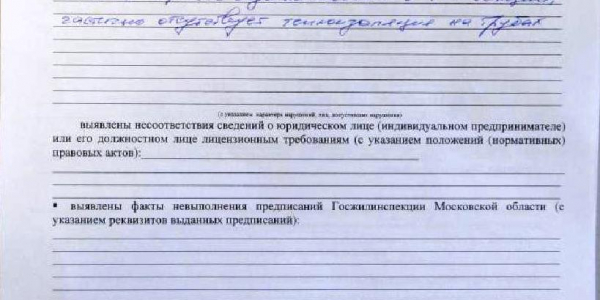 частично отсутствует теплоизоляция на трубах
(с указанием характера нарушений, лиц, допустивших нарушения)
выявлены несоответствия сведений о юридическом лице (индивидуальном предпринимателе)
или его должностном лице лицензионным требованиям (с указанием положений (нормативных)
правовых актов):
• выявлены факты невыполнения предписаний Госжилинспекции Московской области (с
указанием реквизитов выданных предписаний):